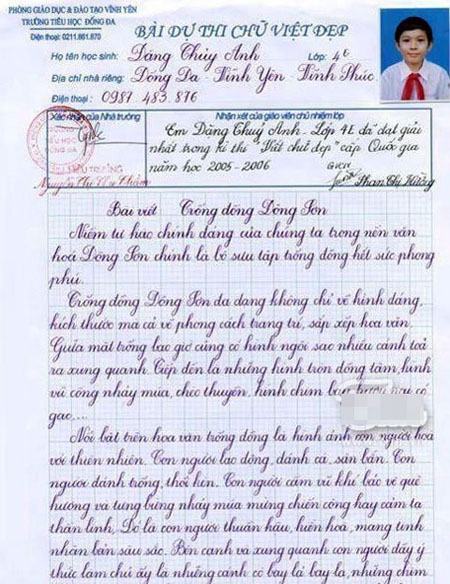 PHÒNG GIÁO DỤC & ĐÀO TẠO VĨNH YÊN
TRƯỜNG TIỂU HỌC ĐỐNG ĐA
Điện thoại: 0211.861.870
BÀI DỰ THI CHỮ VIỆT ĐẸP
Họ tên học sinh: Đặng Thúy Anh Lớp: 4E
Địa chỉ nhà riêng: Đống Đa - Vĩnh Yên - Vĩnh Phúc
Điện thoại: 0987 483.876
Xác nhận của Nhà trường
Nhận xét của giáo viên chủ nhiệm lớp
Em Đặng Thuý Anh - Lớp 4E đã đạt giải
nhất trong kì thi "Viết chữ đẹp" cấp Quốc gia
năm học 2005-2006
GVCN
Phan Thị Hường
HIỆU TRƯỞNG
Bài viết Trống đồng Đông Sơn
Niềm tự hào chính đáng của chúng ta trong nền văn
hoá Đông Sơn chính là bộ sưu tập trống đồng hết sức phong
phú.
Trống đồng Đông Sơn đa dạng không chỉ về hình dáng,
kích thước mà cả về phong cách trang trí, sắp xếp hoa văn.
Giữa mặt trống bao giờ cũng có hình ngôi sao nhiều cánh toả
ra xung quanh. Tiếp đến là những hình tròn đồng tâm, hình
vũ công nhảy múa, chèo thuyền, hình chim bay, hươu nai có
gạc....
Nổi bật trên hoa văn trống đồng là hình ảnh con người hoà
với thiên nhiên. Con người lao động, đánh cá, săn bắn. Con
người đánh trống, thổi kèn. Con người cầm vũ khí bảo vệ quê
hương và tưng bừng nhảy múa mừng chiến công hay cảm tạ
thần linh, Đó là con người thuần hậu, hiền hoà, mang tính
nhân bản sâu sắc. Bên cạnh và xung quanh con người đầy ý
thức làm chủ ấy là những cánh cò bay lả bay la, những chim